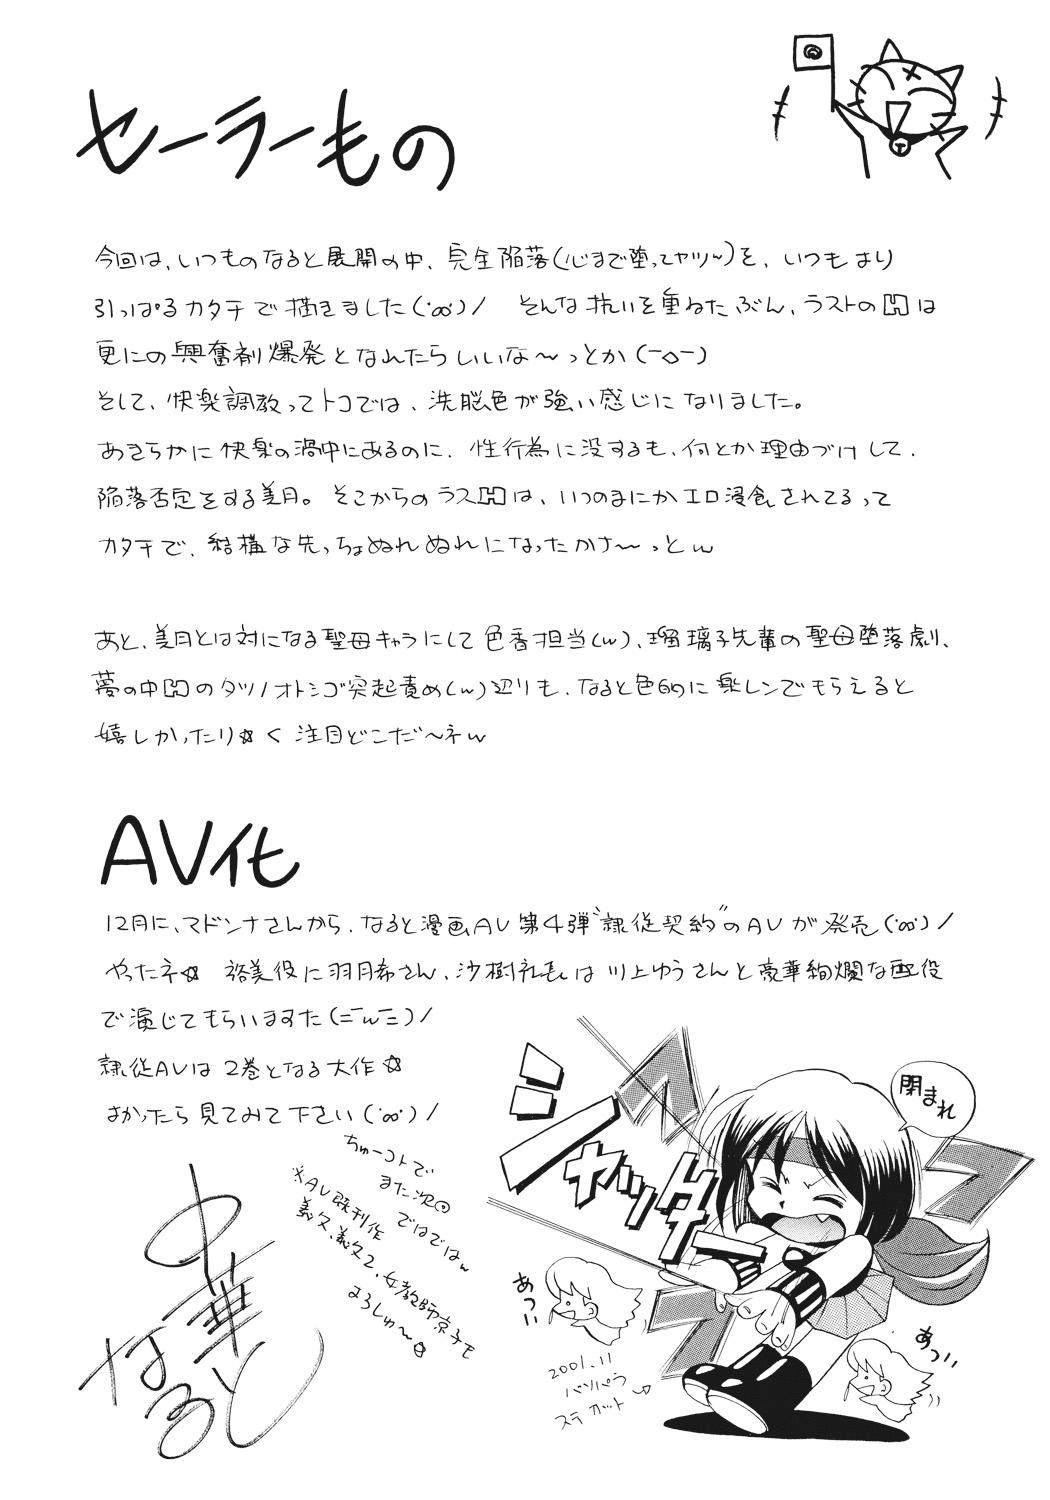 セーラーもの
今回は、いつものなると展開の中、完全陥落(心まで堕ってヤツ~)を、いつもより
引っぱるカタチで描きました(・∞・)ノ そんな抗いを重ねたぶん、ラストのHは
更にの興奮剤爆発となれたらいいな~っとか(ー◇ー)
そして、快楽調教ってトコでは、洗脳色が強い感じになりました。
あきらかに快楽の渦中にあるのに、性行為に没するも、何とか理由づけして、
陥落否定をする美月。そこからのラスHは、いつのまにかエロ浸食されてるって
カタチで、結構な先っちょぬれぬれになったかさ~っとw
あと、美月とは対になる聖母キャラにして色香担当(w)、瑠璃子先輩の聖母堕落劇、
夢の中Hのタツノオトシゴ突起責め(w)辺りも、なると色的に楽しンでもらえると
嬉しかったり☆く 注目どこだ~ネw
AV化
12月に、マドンナさんから、なると漫画AV第4弾"隷従契約"のAVが発売(・∞・)ノ
やったネ☆ 裕美役に羽月希さん、沙樹社長は川上ゆうさんと豪華絢爛な配役
で演じてもらいますた(=ーwー=)ノ
隷従AVは2巻となる大作☆
よかったら見てみて下さい(・∞・)ノ
ちゅーコトで
また次回
ではではw
※AV既刊作
義父、義父2、女教師京子も
よろしゅ~☆
中華なると
シャッター
閉まれ
あっ
あっ
2001.11
バソパラ
ステカット